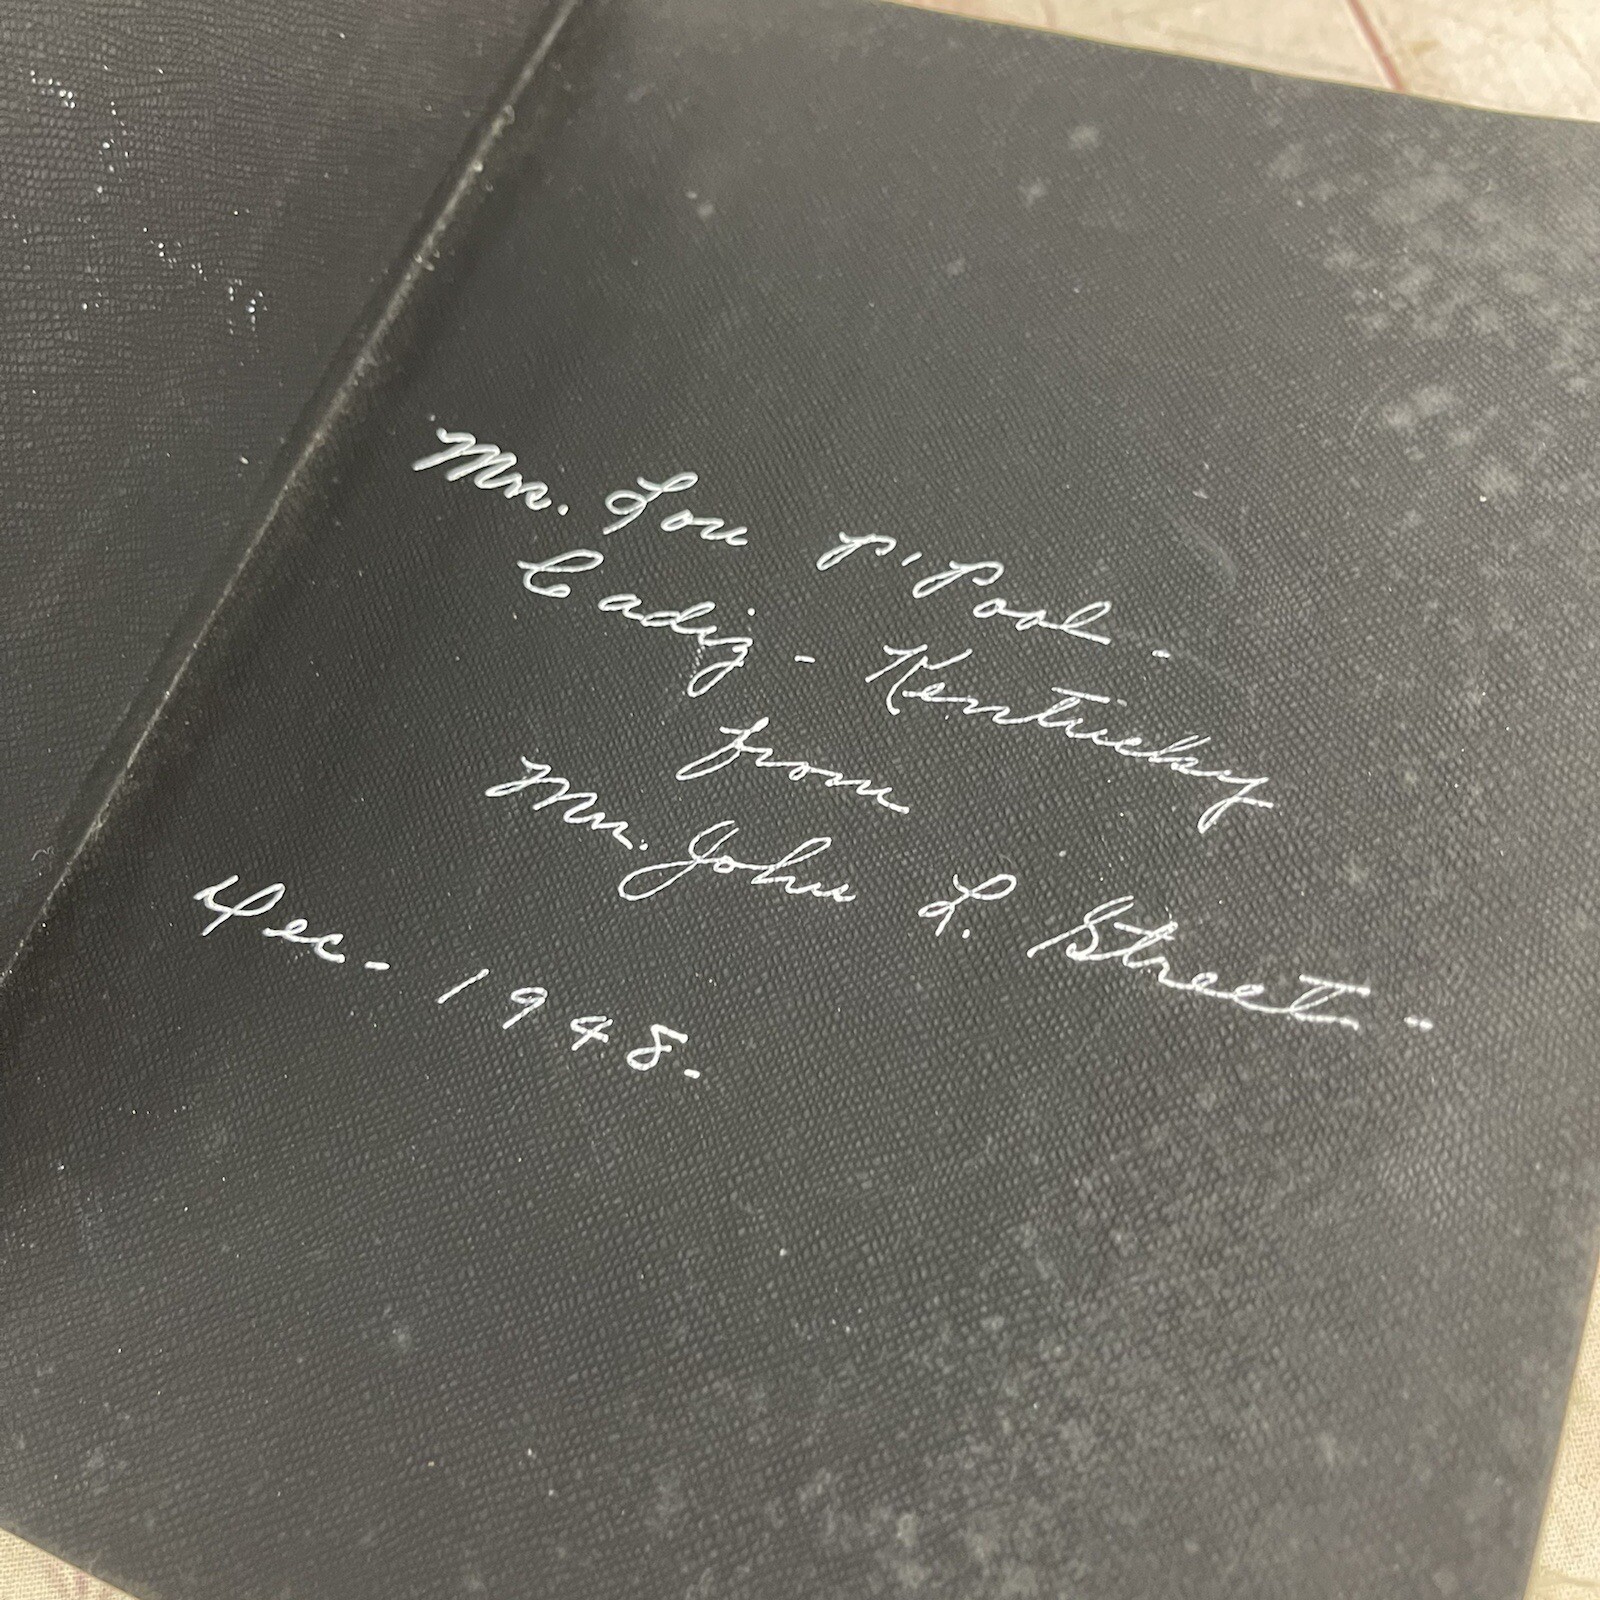 Mrs. Lou P'Pool -
Cadiz - Kentucky
from
Mr. John L. Street -
Dec - 1948 -